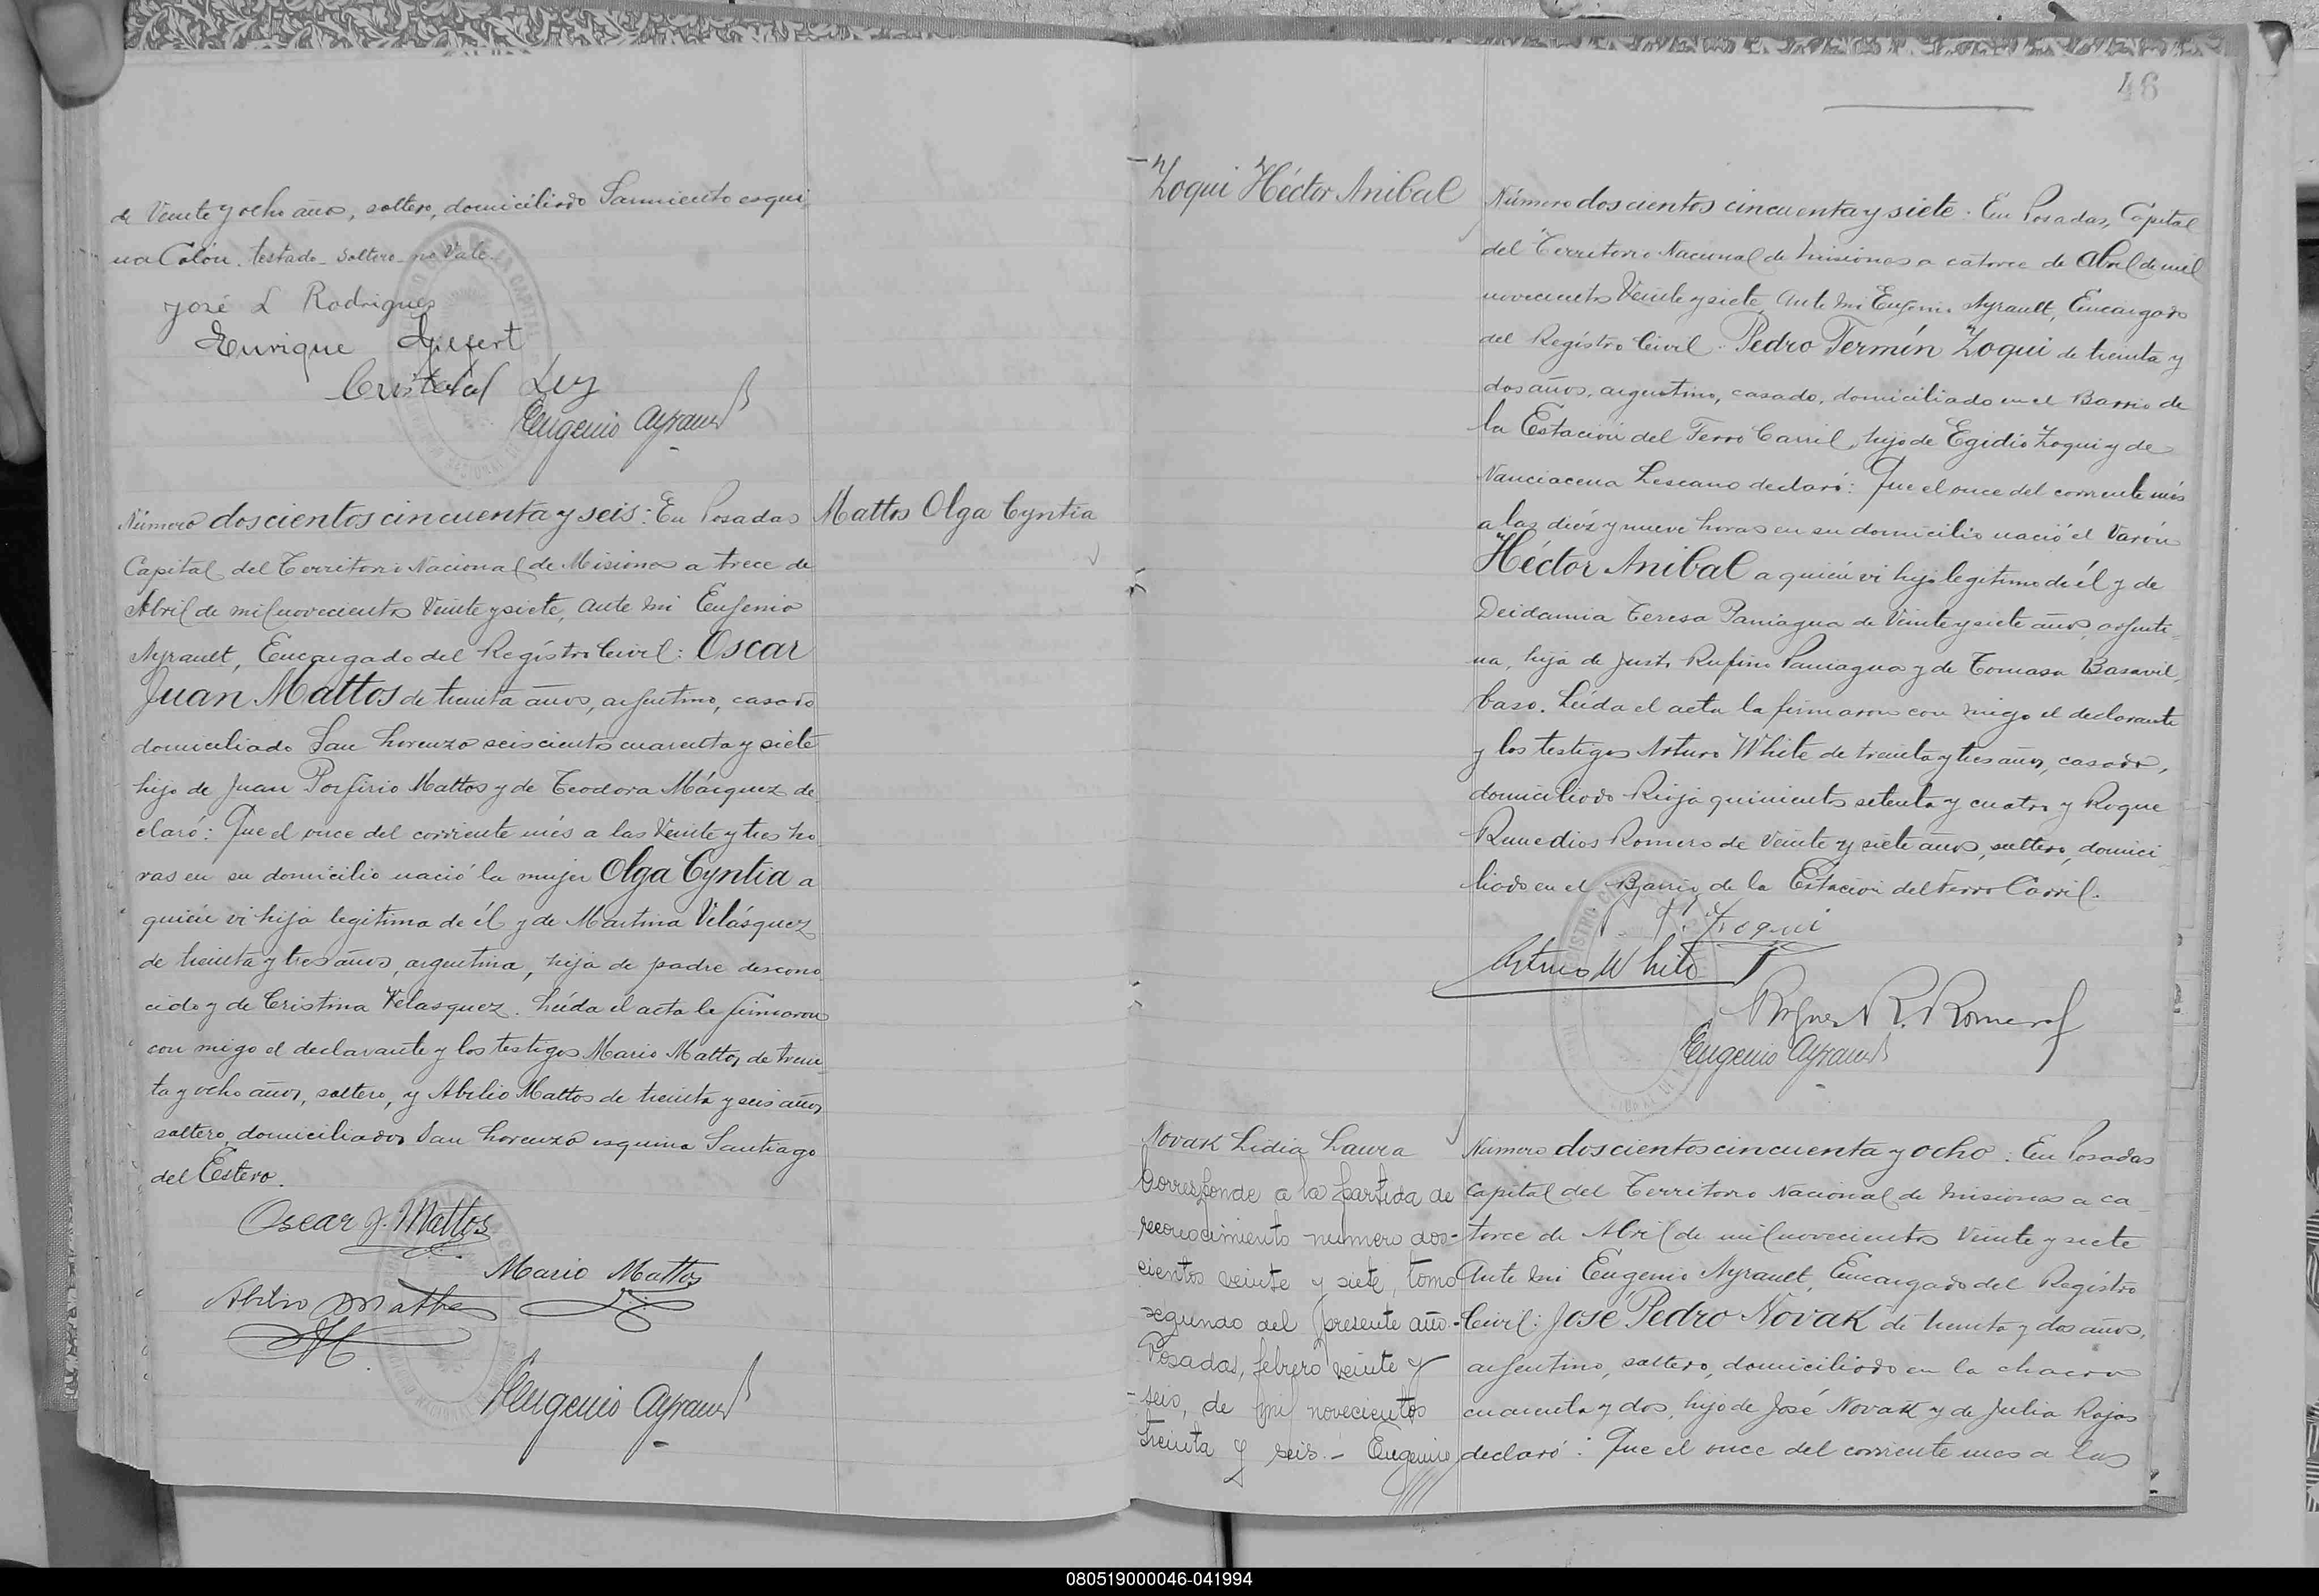 de Veinte y ocho años, soltero, domiciliado Sarmiento esqui-
na Colón. testado - soltero - no Vale.
José L Rodrigues
Enrique
Cristobal Ley
Eugenio Ayrault
Número doscientos cincuenta y seis: En Posadas
Capital del Territorio Nacional de Misiones a trece de
Abril de mil novecientos Veinte y siete, ante mi Eugenio
Ayrault, Encargado del Registro Civil: Oscar
Juan Mattos de treinta años, argentino, casado
domiciliado San Lorenzo seiscientos cuarenta y siete
hijo de Juan Porfirio Mattos y de Teodora Márquez de-
claró: Que el once del corriente més a las Veinte y tres ho-
ras en su domicilio nació la mujer Olga Cyntia a
quien vi hija legitima de él y de Martina Velásquez
de treinta y tres años, argentina, hija de padre descono-
cido y de Cristina Velasquez. Leída el acta la firmaron
con migo el declarante y los testigos Mario Mattos de trein-
ta y ocho años, soltero, y Abilio Mattos de treinta y seis años
soltero, domiciliados San Lorenzo esquina Santiago
del Estero.
Oscar J. Mattos
Mario Mattos
Abilio Mattos
Eugenio Ayrault
Mattos Olga Cyntia
46
Zoqui Héctor Anibal
Número doscientos cincuenta y siete. En Posadas, Capital
del Territorio Nacional de Misiones a catorce de Abril de mil
novecientos Veinte y siete, ante mi Eugenio Ayrault, Encargado
del Registro Civil: Pedro Fermín Zoqui de treinta y
dos años, argentino, casado, domiciliado en el Barrio de
la Estación del Ferro Carril, hijo de Egidio Zoqui y de
Nanciacena Lescano declaró: Que el once del corriente més
a las diéz y nueve horas en su domicilio nació el Varón
Héctor Anibal a quien vi hijo legitimo de él y de
Deidamia Teresa Paniagua de Veinte y siete años, argenti-
na, hija de Justo Rufino Paniagua y de Tomasa Basavil-
baso. Leída el acta la firmaron con migo el declarante
y los testigos Arturo White de treinta y tres años, casado,
domiciliado Rioja quinientos setenta y cuatro y Roque
Remedios Romero de Veinte y siete años, soltero, domici-
liado en el Barrio de la Estación del Ferro Carril.
P. F. Zoqui
Arturo White
Roque R. Romero
Eugenio Ayrault
Novak Lidia Laura
Corresponde a la partida de
reconocimiento numero dos-
cientos veinte y siete, tomo
segundo del presente año.-
Posadas, febrero veinte y
seis, de mil novecientos
treinta y seis.- Eugenio
Número doscientos cincuenta y ocho: En Posadas
Capital del Territorio Nacional de Misiones a ca-
torce de Abril de mil novecientos Veinte y siete
Ante mi Eugenio Ayrault, Encargado del Registro
Civil: José Pedro Novak de treinta y dos años,
argentino, soltero, domiciliado en la chacra
cuarenta y dos, hijo de José Novak y de Julia Rojas
declaró: Que el once del corriente mes a las
080519000046-041994